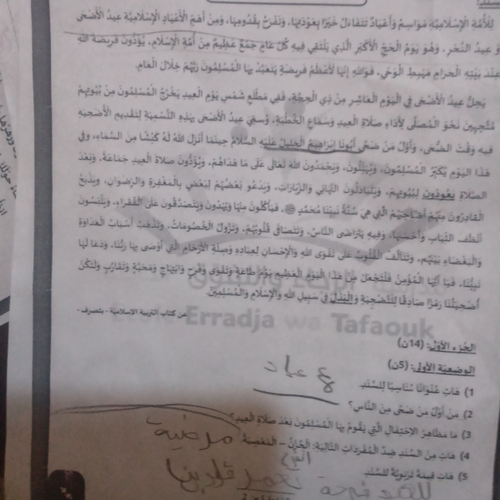 لِلْأُمَّةِ الْإِسْلَامِيَّةِ مَوَاسِمُ وَأَعْيَادٌ تَتَفَاءَلُ خَيْرًا بِعَوْدَتِهَا، وَتَفْرَحُ بِقُدُومِهَا، وَمِنْ أَهَمِّ الْأَعْيَادِ الْإِسْلَامِيَّةِ عِيدُ الْأَضْحَى
أو عِيدُ النَّحْرِ، وَهُوَ يَوْمُ الْحَجِّ الْأَكْبَرِ الَّذِي يَلْتَقِي فِيهِ كُلَّ عَامٍ جَمْعٌ عَظِيمٌ مِنْ أُمَّةِ الْإِسْلَامِ، يُؤَدُّونَ فَرِيضَةَ اللهِ
عِنْدَ بَيْتِهِ الْحَرَامِ مَهْبِطِ الْوَحْيِ، فَوَاللهِ إِنَّهَا لَأَعْظَمُ فَرِيضَةٍ يَتَعَبَّدُ بِهَا الْمُسْلِمُونَ رَبَّهُمْ خِلَالَ الْعَامِ.
يَحِلُّ عِيدُ الْأَضْحَى فِي الْيَوْمِ الْعَاشِرِ مِنْ ذِي الْحِجَّةِ، فَفِي مَطْلَعِ شَمْسِ يَوْمِ الْعِيدِ يَخْرُجُ الْمُسْلِمُونَ مِنْ بُيُوتِهِمْ
مُتَّجِهِينَ نَحْوَ الْمُصَلَّى لِأَدَاءِ صَلَاةِ الْعِيدِ وَسَمَاعِ الْخُطْبَةِ، وَسُمِّيَ عِيدُ الْأَضْحَى بِهَذِهِ التَّسْمِيَةِ لِتَقْدِيمِ الْأُضْحِيَةِ
فِيهِ وَقْتَ الضُّحَى، وَأَوَّلُ مَنْ ضَحَّى أَبُونَا إِبْرَاهِيمُ الْخَلِيلُ عَلَيْهِ السَّلَامُ حِينَمَا أَنْزَلَ اللهُ لَهُ كَبْشًا مِنَ السَّمَاءِ، وَفِي
هَذَا الْيَوْمِ يُكَبِّرُ الْمُسْلِمُونَ، وَيُهَلِّلُونَ، وَيَحْمَدُونَ اللهَ تَعَالَى عَلَى مَا هَدَاهُمْ، وَيُؤَدُّونَ صَلَاةَ الْعِيدِ جَمَاعَةً، وَبَعْدَ
الصَّلَاةِ يَعُودُونَ لِبُيُوتِهِمْ، وَيَتَبَادَلُونَ التَّهَانِي وَالزِّيَارَاتِ، وَيَدْعُو بَعْضُهُمْ لِبَعْضٍ بِالْمَغْفِرَةِ وَالرِّضْوَانِ، وَيَذْبَحُ
الْقَادِرُونَ مِنْهُمْ أَضَاحِيَهُمُ الَّتِي هِيَ سُنَّةُ نَبِيِّنَا مُحَمَّدٍ ﷺ، فَيَأْكُلُونَ مِنْهَا وَيُهْدُونَ وَيَتَصَدَّقُونَ عَلَى الْفُقَرَاءِ، وَيَلْبَسُونَ
أَنْظَفَ الثِّيَابِ وَأَحْسَنَهَا، وَفِيهِ يَتَرَاضَى النَّاسُ، وَتَتَصَافَى قُلُوبُهُمْ، وَتَزُولُ الْخُصُومَاتُ، وَتَذْهَبُ أَسْبَابُ الْعَدَاوَةِ
وَالْبَغْضَاءِ بَيْنَهُمْ، وَتَتَآلَفُ الْقُلُوبُ عَلَى تَقْوَى اللهِ وَالْإِحْسَانِ لِعِبَادِهِ وَصِلَةِ الْأَرْحَامِ الَّتِي أَوْصَى بِهَا رَبُّنَا، وَدَعَا لَهَا
نَبِيُّنَا، فَيَا أَيُّهَا الْمُؤْمِنُ فَلْتَجْعَلْ مِنْ هَذَا الْيَوْمِ الْعَظِيمِ يَوْمَ طَاعَةٍ وَتَقْوَى وَفَرَحٍ وَابْتِهَاجٍ وَمَحَبَّةٍ وَتَقَارُبٍ وَلْتَكُنْ
أُضْحِيَتُنَا رَمْزًا صَادِقًا لِلتَّضْحِيَةِ وَالْبَذْلِ فِي سَبِيلِ اللهِ وَالْإِسْلَامِ وَالْمُسْلِمِينَ.
Erradja wa Tafaouk
-من كتاب التربية الإسلامية - بتصرف
الجُزء الأوّل: (14ن)
الوَضعيّة الأولى: (5ن)
1) هَاتِ عُنْوَانًا مُنَاسِبًا لِلسَّنَدِ
2) مَنْ أَوَّلُ مَنْ ضَحَّى مِنَ النَّاسِ؟
3) مَا مَظَاهِرُ الاِحْتِفَالِ الَّتِي يَقُومُ بِهَا الْمُسْلِمُونَ بَعْدَ صَلَاةِ الْعِيدِ؟
4) هَاتِ مِنَ السَّنَدِ ضِدَّ الْمُفْرَدَاتِ التَّالِيَةِ: الْحُزْنُ – الْمَعْصِيَةُ
5) هَاتِ قِيمَةً تَرْبَوِيَّةً لِلسَّنَدِ